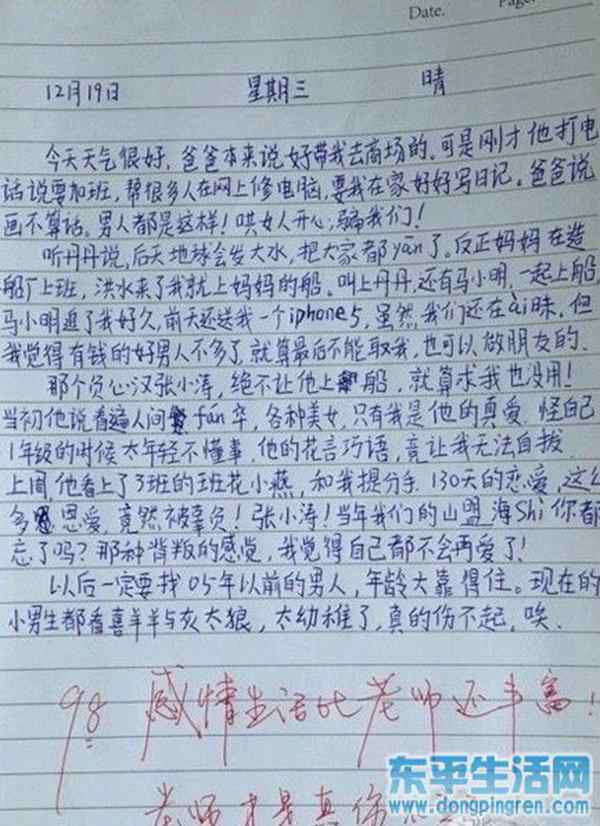 Date.
Page.
12月19日 星期三 晴
今天天气很好，爸爸本来说好带我去商场的。可是刚才他打电
话说要加班，帮很多人在网上修电脑，要我在家好好写日记。爸爸说
画不算话。男人都是这样！哄女人开心，骗我们！
听丹丹说，后天地球会发大水，把大家都yān了。反正妈妈在造
船厂上班，洪水来了我就上妈妈的船。叫上丹丹，还有马小明，一起上船，
马小明追了我好久，前天还送我一个iphone5，虽然我们还在ài昧，但
我觉得有钱的好男人不多了，就算最后不能取我，也可以放朋友的。
那个负心汉张小涛，绝不让他上船，就算求我也没用！
当初他说看遍人间fan华，各种美女，只有我是他的真爱。怪自己
1年级的时候太年轻不懂事，他的花言巧语，竟让我无法自拔。
上周，他看上了3班的班花小燕，和我提分手。130天的恋爱，这么
多恩爱，竟然被辜负！张小涛！当年我们的山盟海Shi你都
忘了吗？那种背叛的感觉，我觉得自己都不会再爱了！
以后一定要找05年以前的男人，年龄大靠得住。现在的
小男生都看喜羊羊与灰太狼，太幼稚了，真的伤不起。唉。
98 感情生活比老师还丰富！
老师才是真伤
东平生活网
www.dongpingren.com